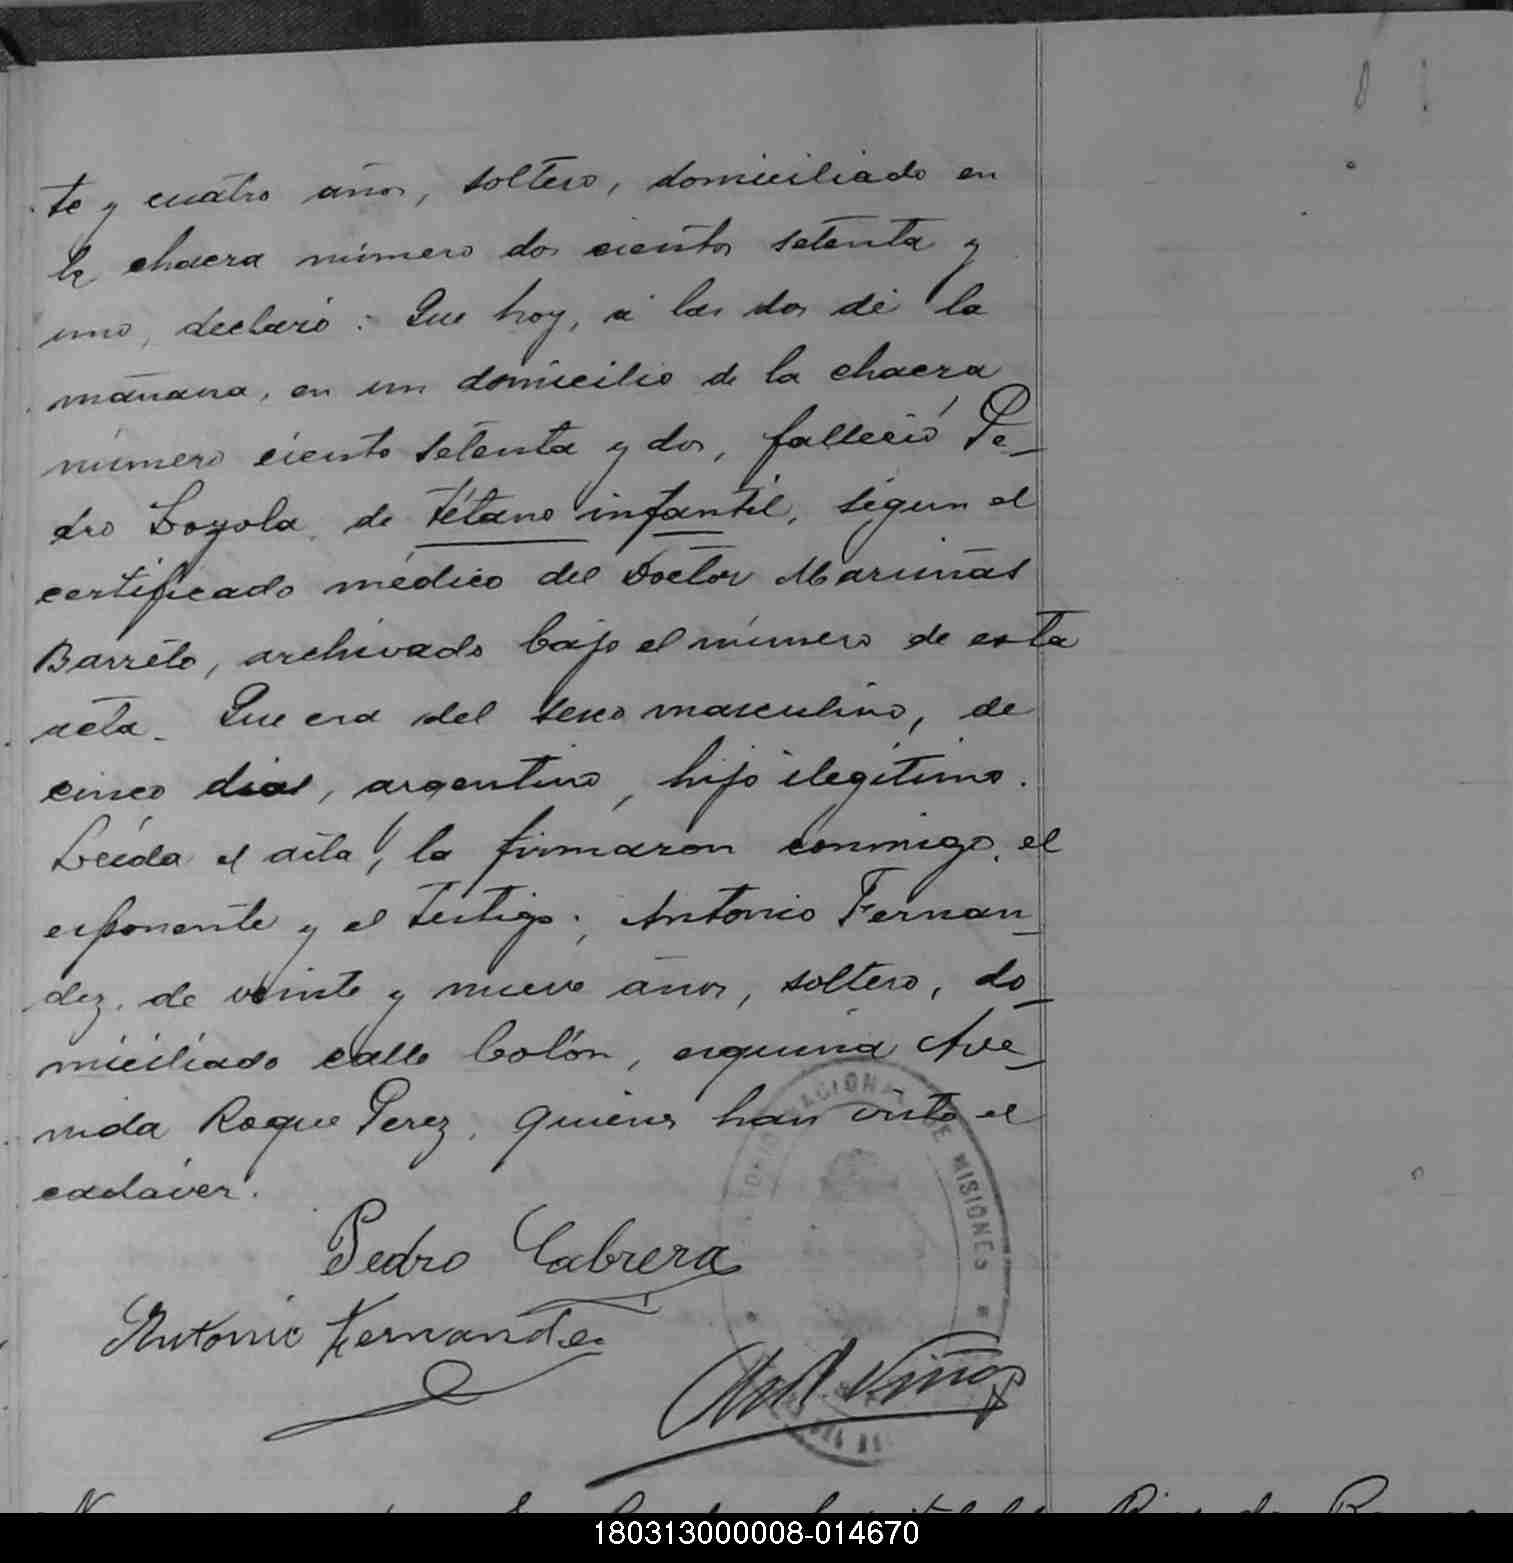 te y cuatro años, soltero, domiciliado en
la chacra número dos cientos setenta y
uno, declaró: Que hoy, a las dos de la
mañana, en un domicilio de la chacra
número ciento setenta y dos, falleció Pe-
dro Loyola, de tétano infantil, segun el
certificado médico del Doctor Mariñas
Barreto, archivado bajo el número de esta
acta. Que era del sexo masculino, de
cinco dias, argentino, hijo ilegítimo.
Leida el acta, la firmaron conmigo, el
exponente y el testigo; Antonio Fernan-
dez, de veinte y nueve años, soltero, do-
miciliado calle Colón, esquina Ave-
nida Roque Perez, quienes han visto el
cadáver.
Pedro Cabrera
Antonio Fernandez
Viñas
NACIONAL DE MISIONES
180313000008-014670